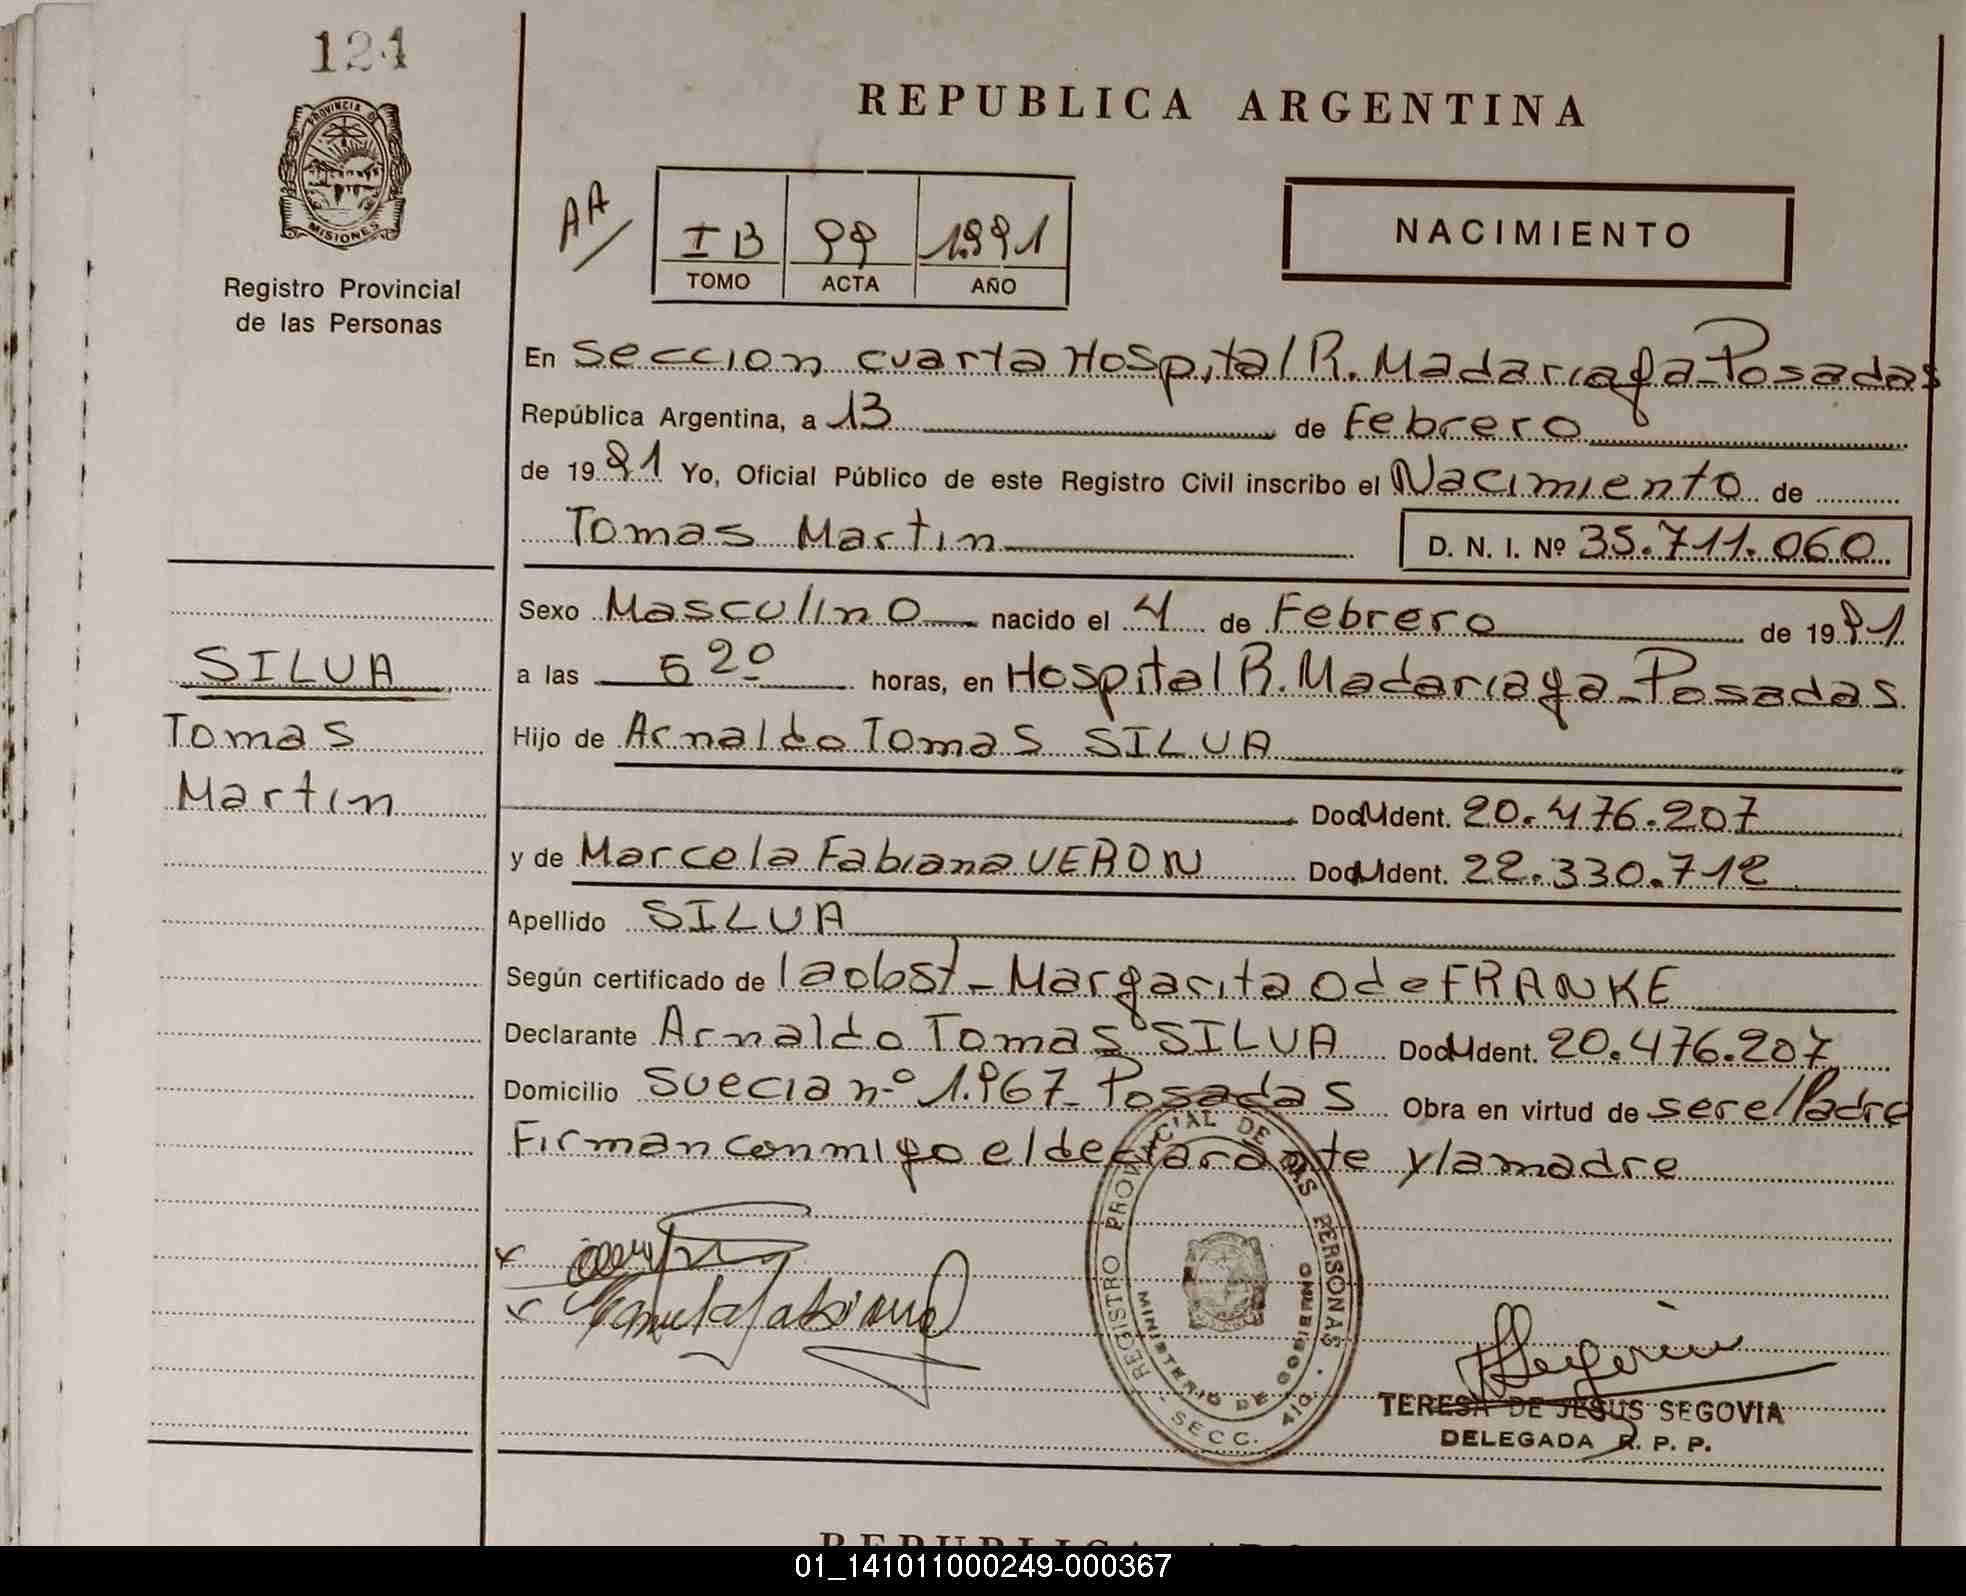 124
PROVINCIA DE
MISIONES
Registro Provincial
de las Personas
SILVA
Tomas
Martin
REPUBLICA ARGENTINA
AA/
I B 99 1991
TOMO ACTA AÑO
NACIMIENTO
En Seccion cuarta Hospital R. Madariaga - Posadas
República Argentina, a 13 de Febrero
de 1991 Yo, Oficial Público de este Registro Civil inscribo el Nacimiento de
Tomas Martin D. N. I. Nº 35.711.060
Sexo Masculino nacido el 4 de Febrero de 1991
a las 5 20 horas, en Hospital R. Madariaga - Posadas
Hijo de Arnaldo Tomas SILVA
Doc. Ident. 20.476.207
y de Marcela Fabiana VERON Doc. Ident. 22.330.712
Apellido SILVA
Según certificado de la obst - Margarita O de FRANKE
Declarante Arnaldo Tomas SILVA Doc. Ident. 20.476.207
Domicilio Suecia nº 1.967 - Posadas Obra en virtud de ser el Padre
Firman conmigo el declarante y la madre
REGISTRO PROVINCIAL DE LAS PERSONAS
MINISTERIO DE GOBIERNO
SECC. 4ta.
TERESA DE JESUS SEGOVIA
DELEGADA R. P. P.
01_141011000249-000367